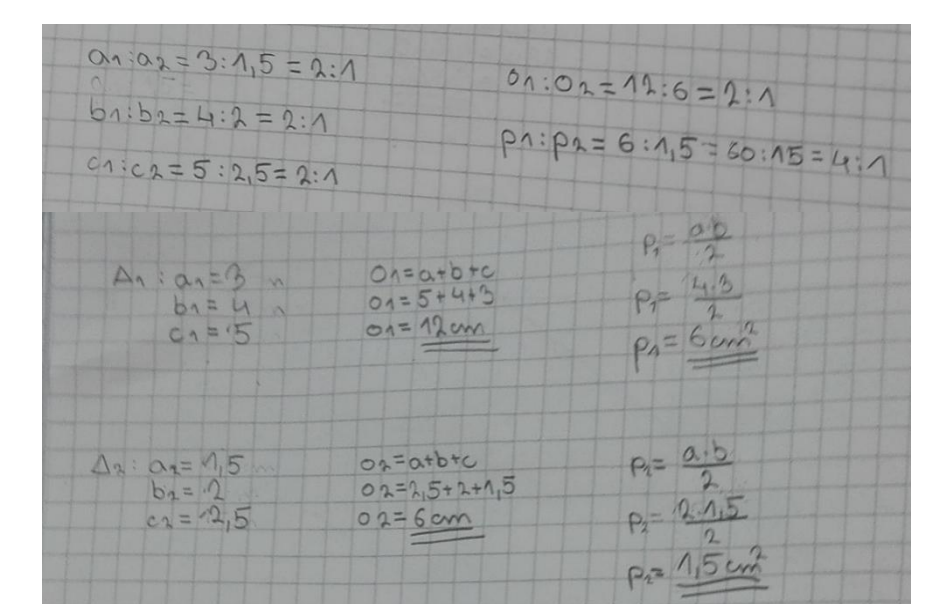 a1:a2=3:1,5=2:1
b1:b2=4:2=2:1
c1:c2=5:2,5=2:1
o1:o2=12:6=2:1
p1:p2=6:1,5=60:15=4:1
Δ1: a1=3
b1=4
c1=5
o1=a+b+c
o1=5+4+3
o1=12cm
p1=a·b/2
p1=4·3/2
p1=6cm²
Δ2: a2=1,5
b2=2
c2=2,5
o2=a+b+c
o2=2,5+2+1,5
o2=6cm
p2=a·b/2
p2=2·1,5/2
p2=1,5cm²